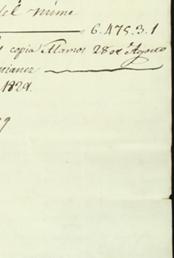 del mismo
6.475.3.1
copia Alamos 28 de Agosto
1829.
9